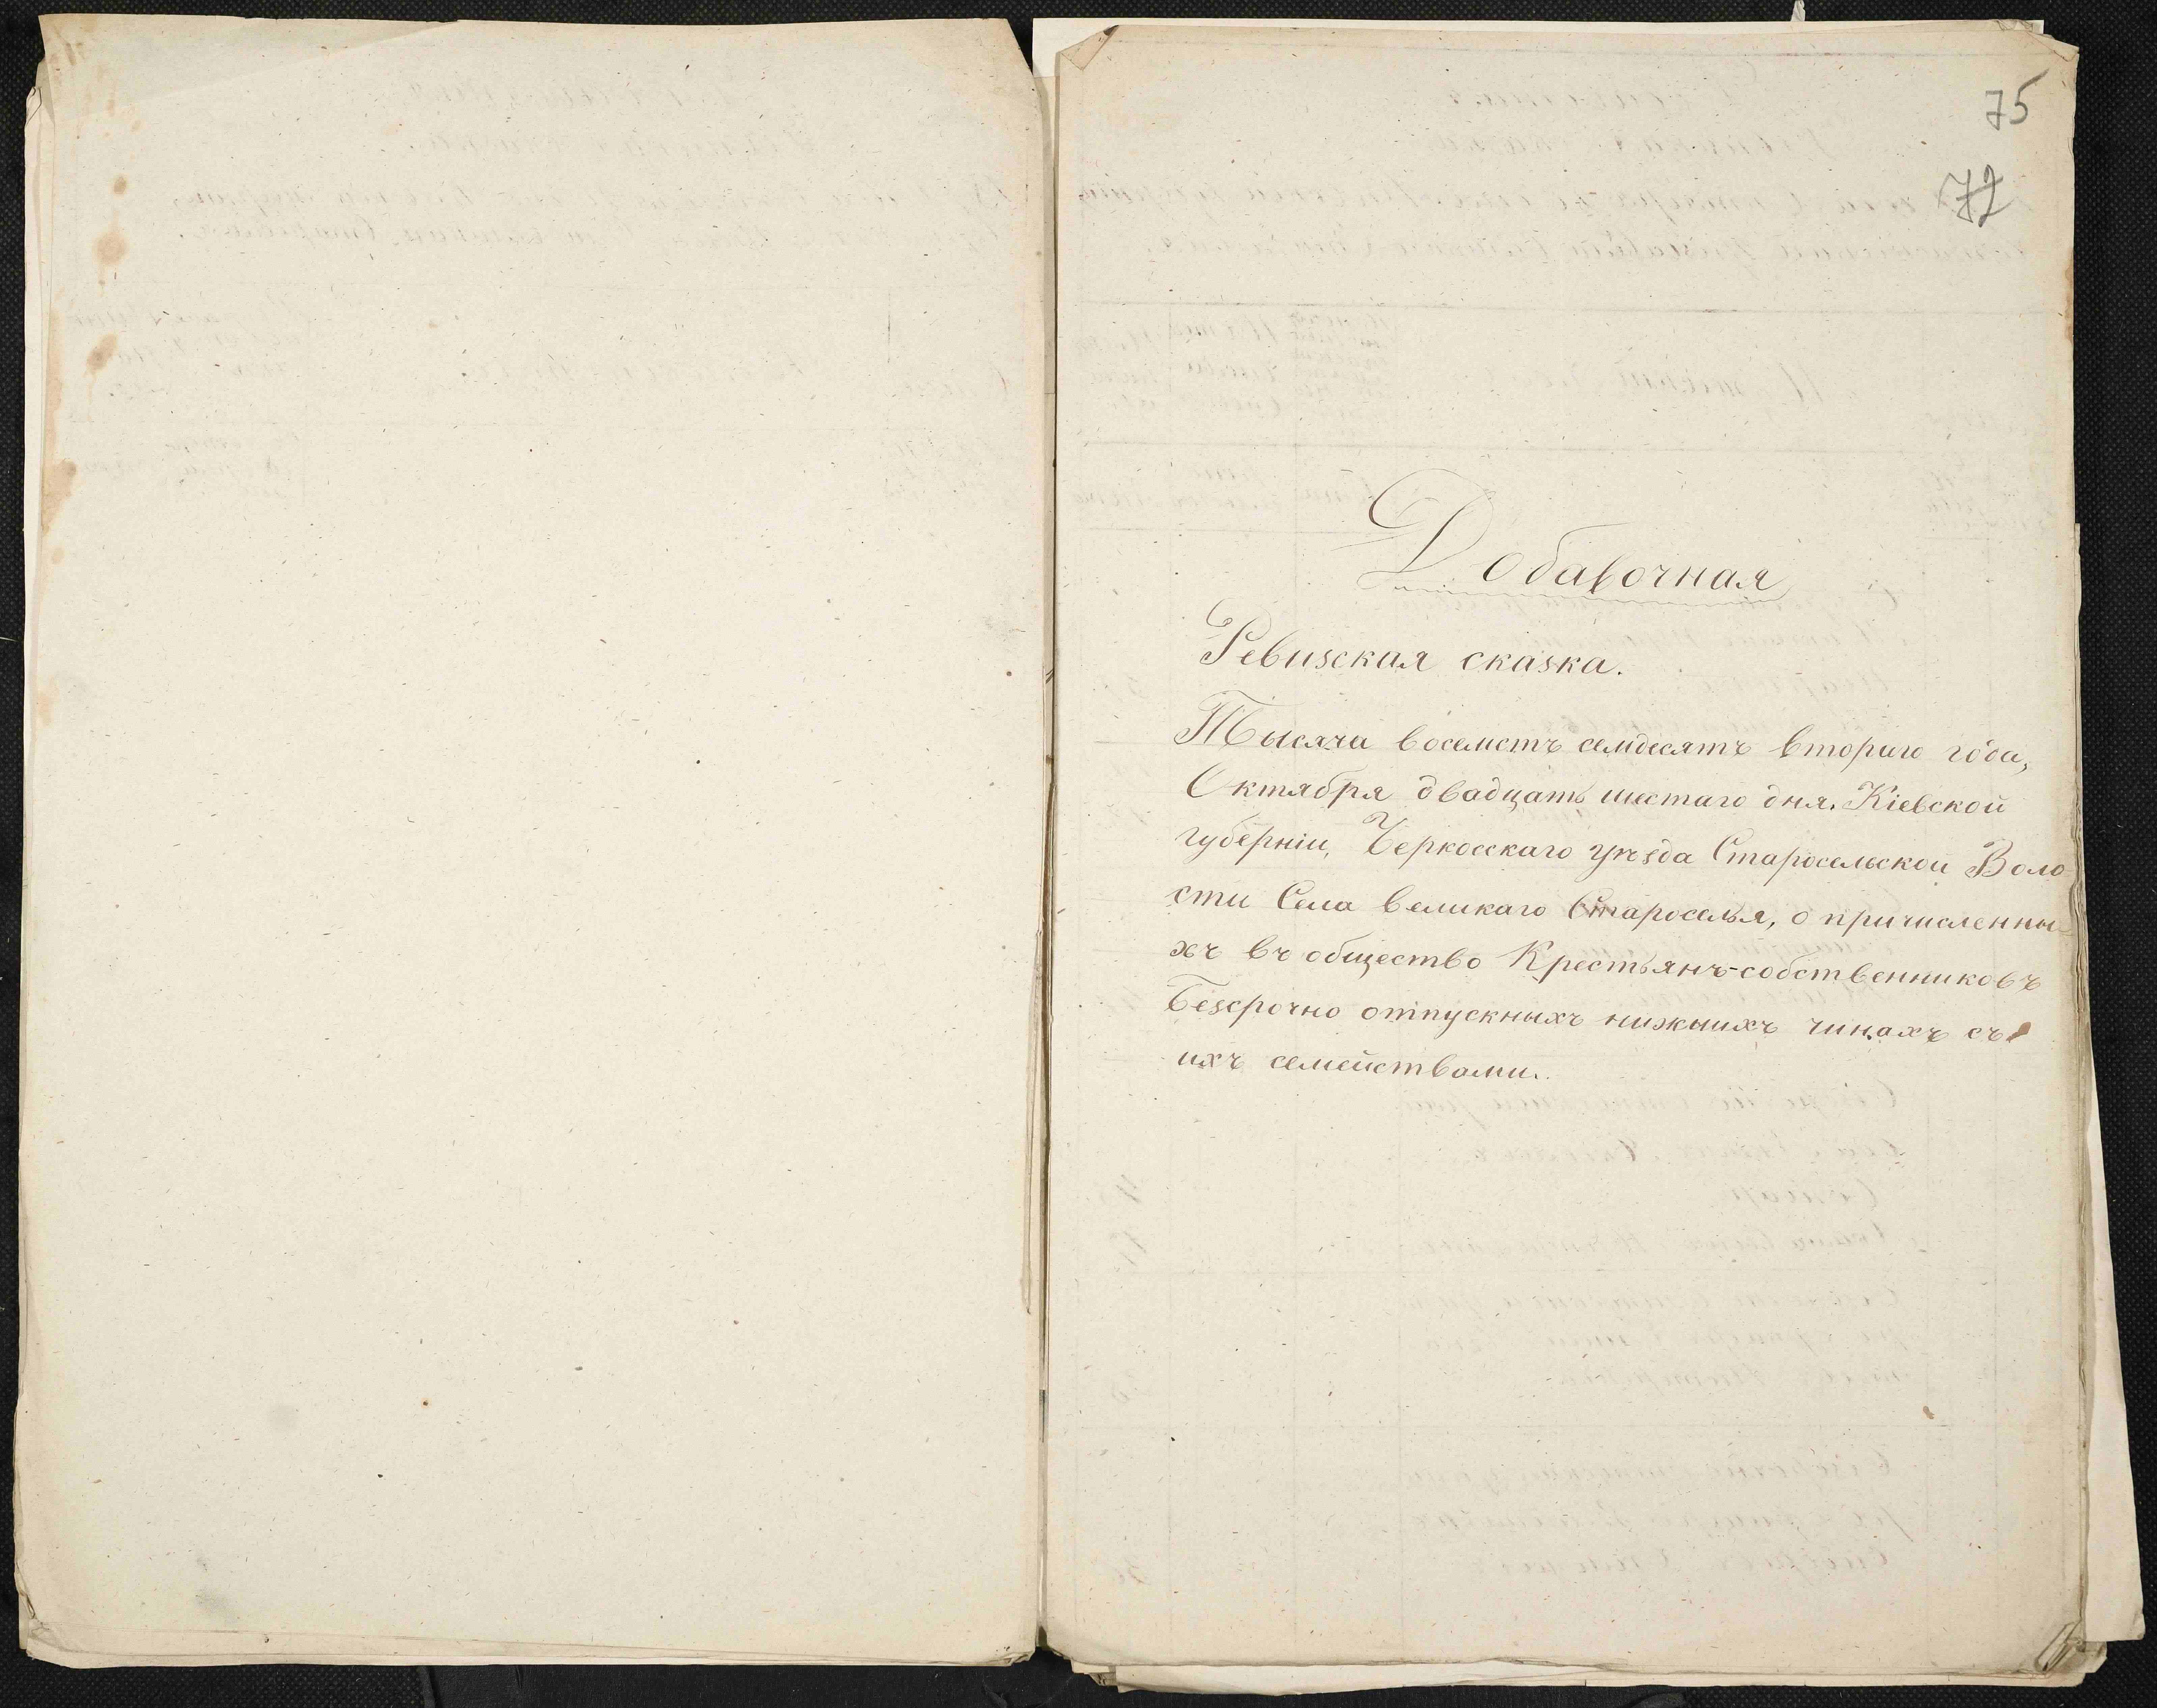 75
72
Добавочная
Ревизская сказка.
Тысяча восемстъ семдесятъ втораго года,
Октября двадцать шестаго дня. Кіевской
губерніи, Черкосскаго уѣзда Старосельской Воло
сти Села великаго Староселья, о причисленны-
хъ въ общество Крестьянъ-собственниковъ
безсрочно отпускныхъ нижнихъ чинахъ съ
ихъ семействами.